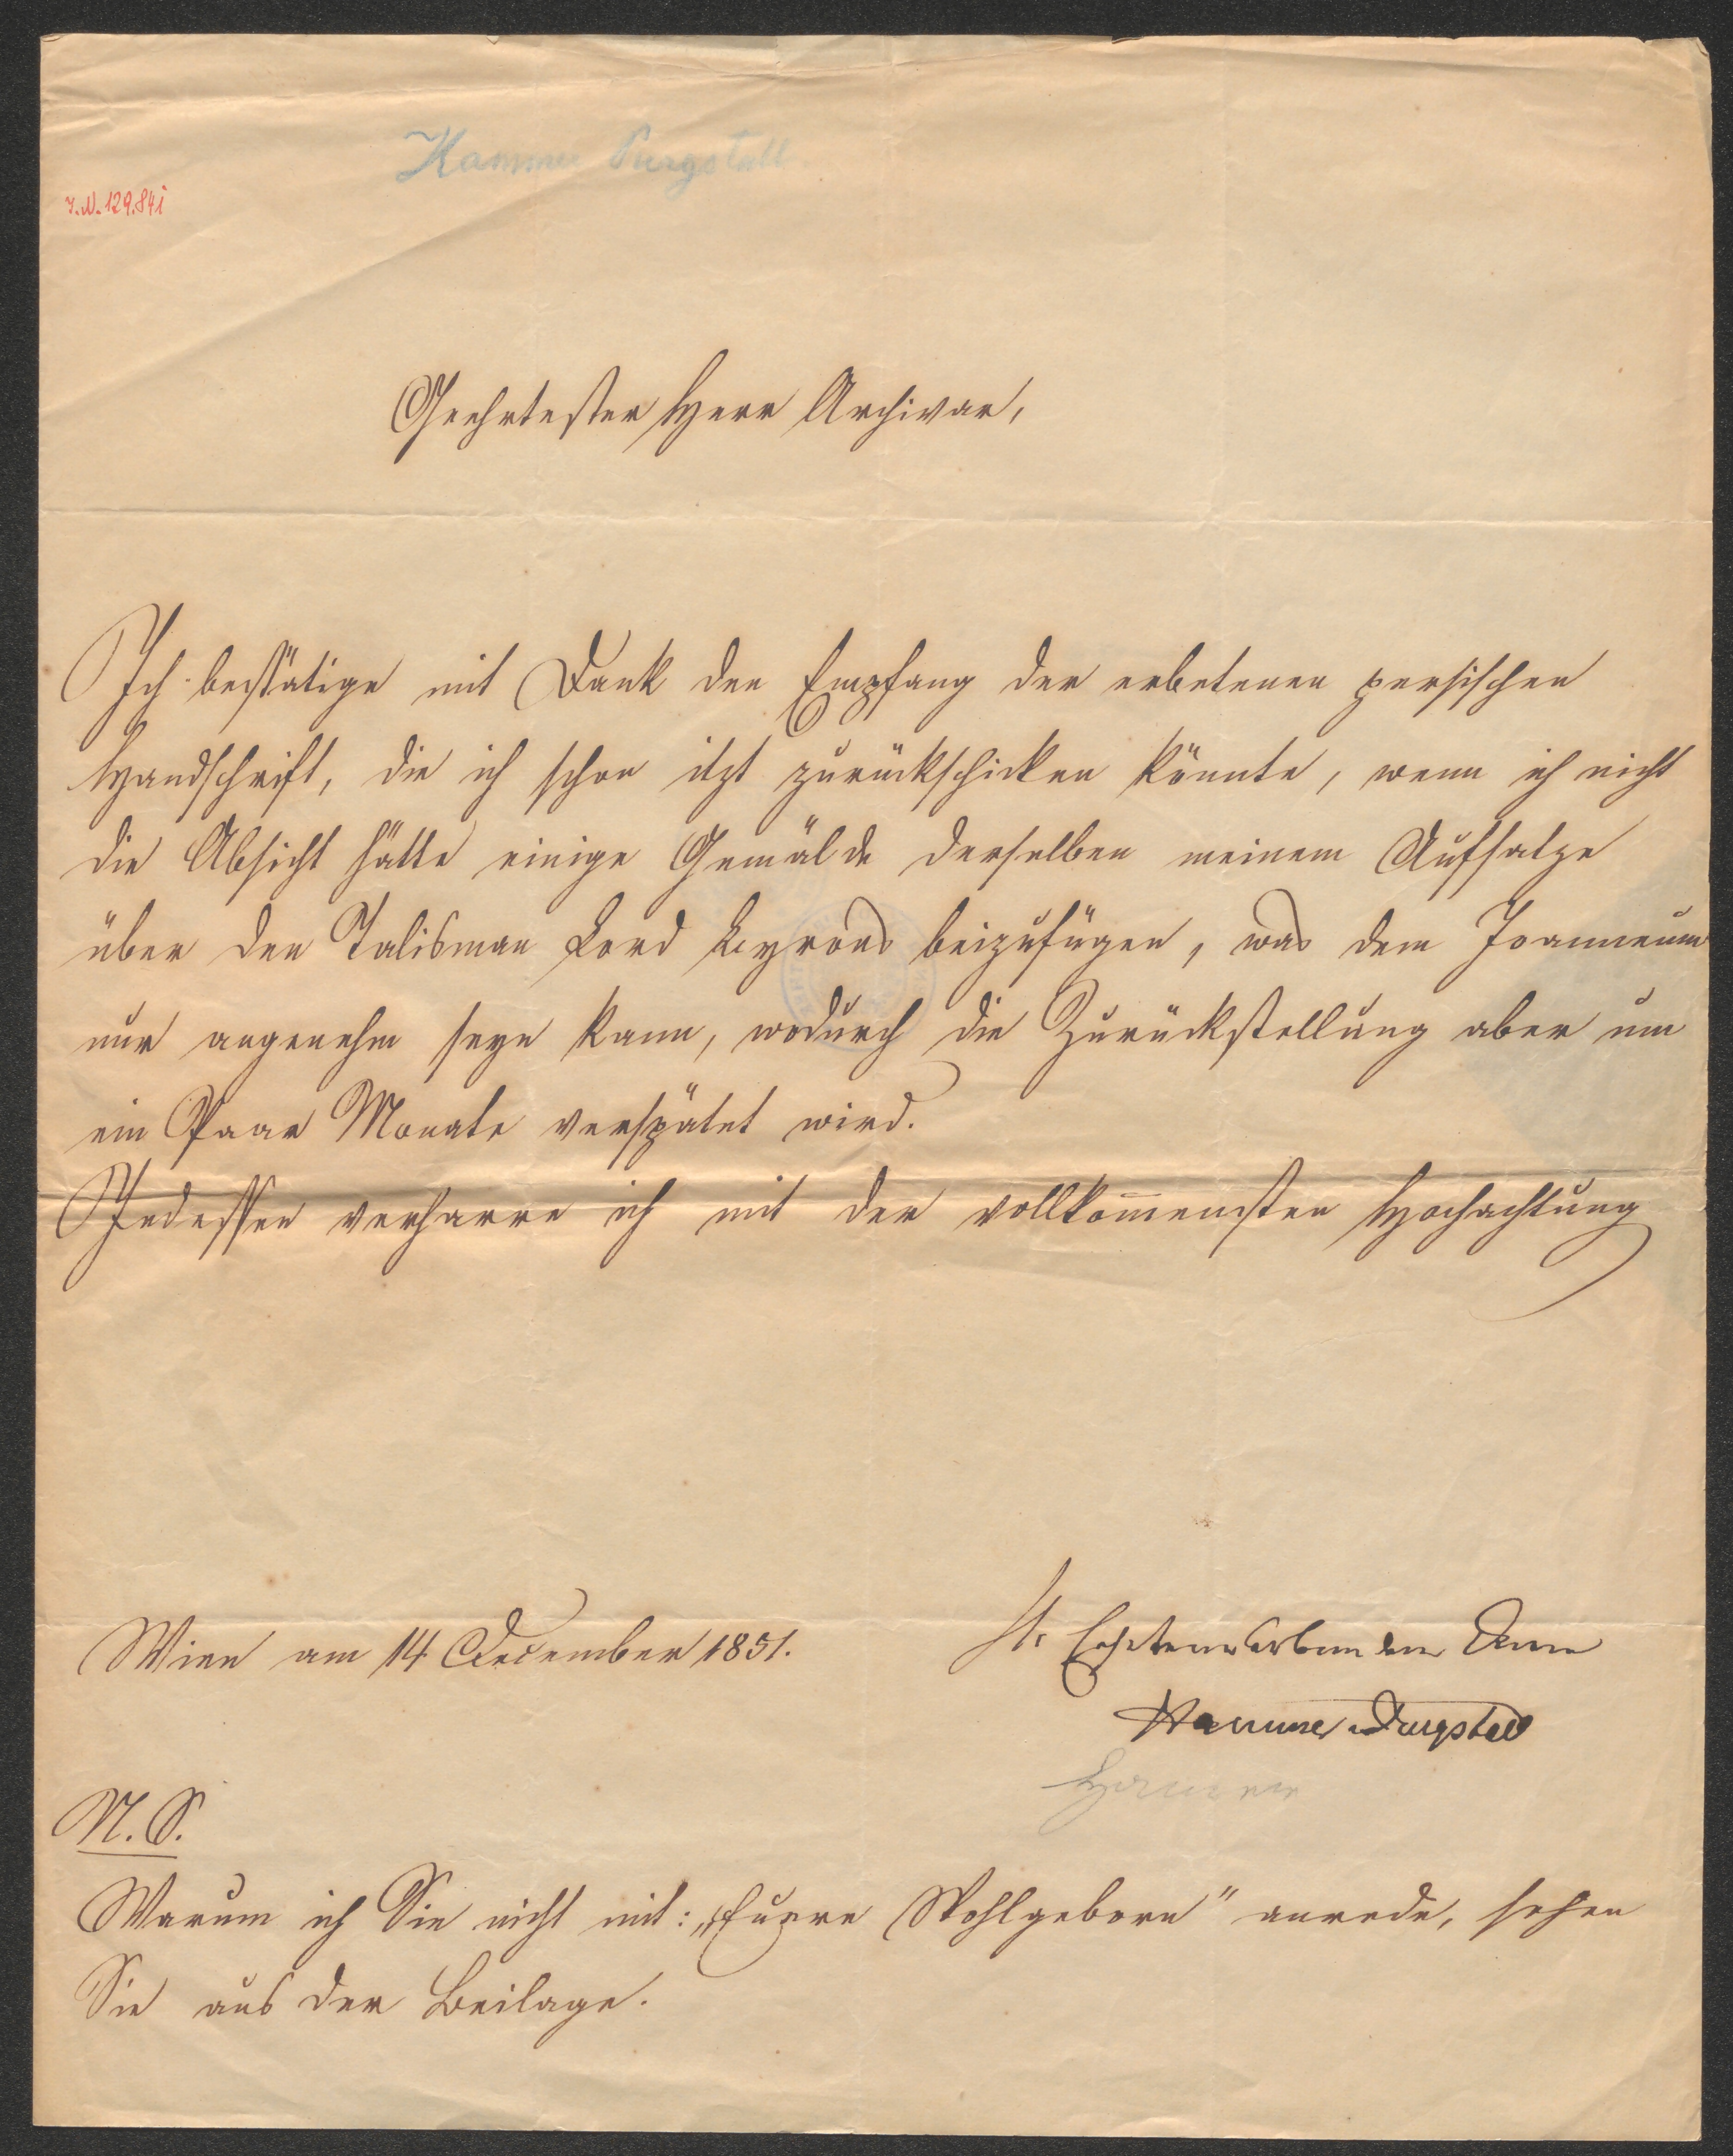 Hammer Purgstall
I.N. 129.841
Geehrtester Herr Archivar,
Ich bestätige mit Dank den Empfang der erbetenen persischen
Handschrift, die ich schon itzt zurückschicken könnte, wenn ich nicht
die Absicht hätte einige Gemälde derselben meinem Aufsatze
über den Talisman Lord Byrons beizufügen, was dem Joanneum
nur angenehm seyn kann, wodurch die Zurückstellung aber um
ein Paar Monate verspätet wird.
Indessen verharre ich mit der vollkom̅ensten Hochachtung
Wien am 14. December 1851.
Ihr
Hammer-Purgstall
N.S.
Warum ich Sie nicht mit: „Euere Wohlgeborn" anrede, sehen
Sie aus der Beilage.